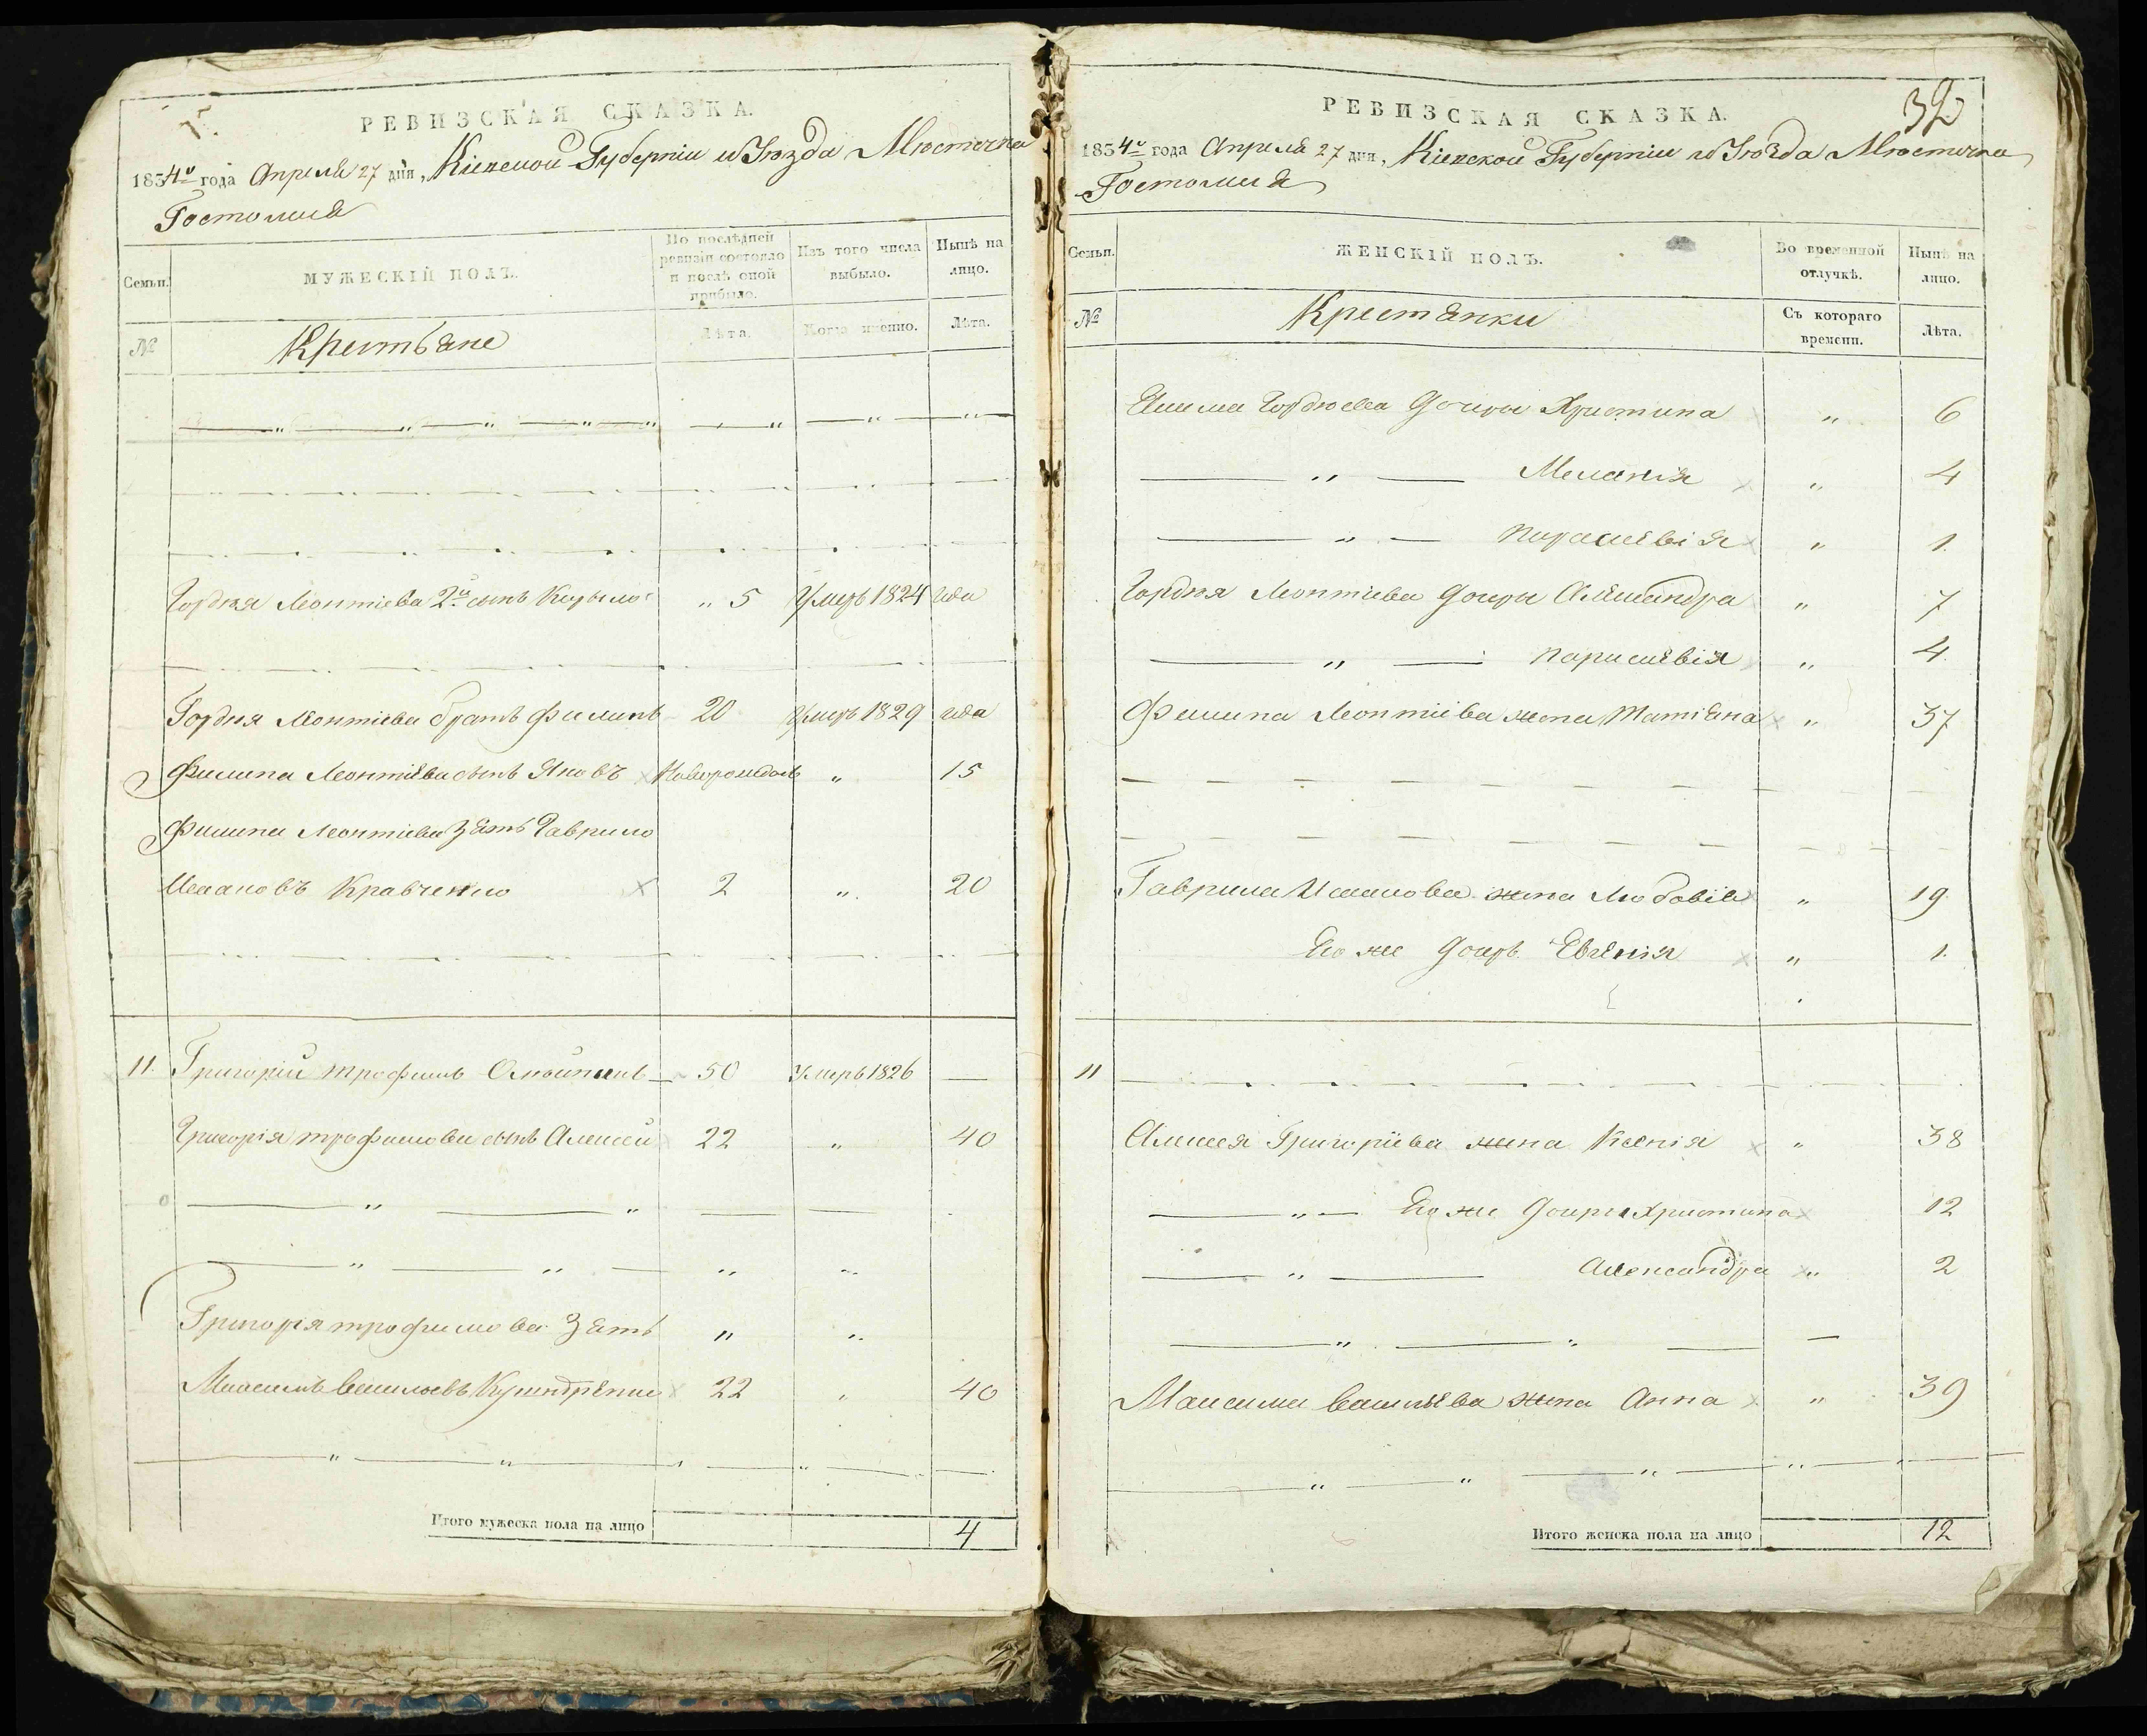 РЕВИЗСКАЯ СКАЗКА.
1834го года Апреля 27 дня, Кіевской Губерніи и Уѣзда Мѣстечка
Гостомля
Семьи.
МУЖЕСКІЙ ПОЛЪ.
По послѣдней ревизіи состояло и послѣ оной прибыло.
Изъ того числа выбыло.
Нынѣ на лицо.
№
Крестьяне
Лѣта.
Когда именно.
Лѣта.
Гордѣя Леонтіева 2й сынъ Кирило 5 Умеръ 1824 года
Гордѣя Леонтіева братъ Филипъ 20 Умеръ 1829 года
Филипа Леонтіева сынъ Яковъ Новорожденъ " 15
Филипа Леонтіева Зять Гаврило
Кравченко 2 " 20
11. Григорій Трофимъ 50 Умеръ 1826 —
Григорія Трофимова сынъ Алексей 22 " 40
Григорія Трофимова Зять " "
Максимъ Васильевъ 22 " 40
Итого мужеска пола на лицо 4
32
РЕВИЗСКАЯ СКАЗКА.
1834го года Апреля 27 дня, Кіевской Губерніи и Уѣзда Мѣстечка
Гостомля
Семьи.
ЖЕНСКІЙ ПОЛЪ.
Во временной отлучкѣ.
Нынѣ на лицо.
№
Крестянки
Съ котораго времени.
Лѣта.
Гордѣева дочери Христина " 6
" Меланія " 4
" Параскевія " 1
Гордѣя Леонтіева дочери Александра " 7
" Параскевія " 4
Филипа Леонтіева жена Татіяна " 37
Гаврила жена Любовія " 19
Его же дочерь Евгенія " 1
11
Алексея Григоріева жена Ксенія " 38
" Его же дочери Христина 12
" Александра " 2
Максима Васильева жена Анна " 39
Итого женска пола на лицо 12